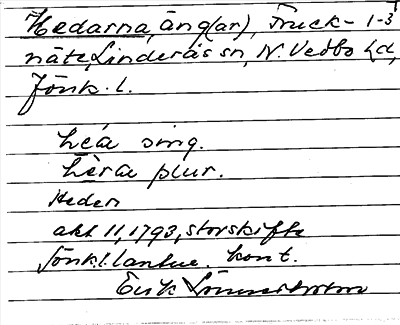 Hedarna, äng(ar), Truck- 1-3
näte, Linderås sn, N. Vedbo hd,
Jönk. l.
heá sing.
hèra plur.
Heden
akt 11, 1793, storskifte
Jönk. l. lantm. kont.
Erik Lönnerholm